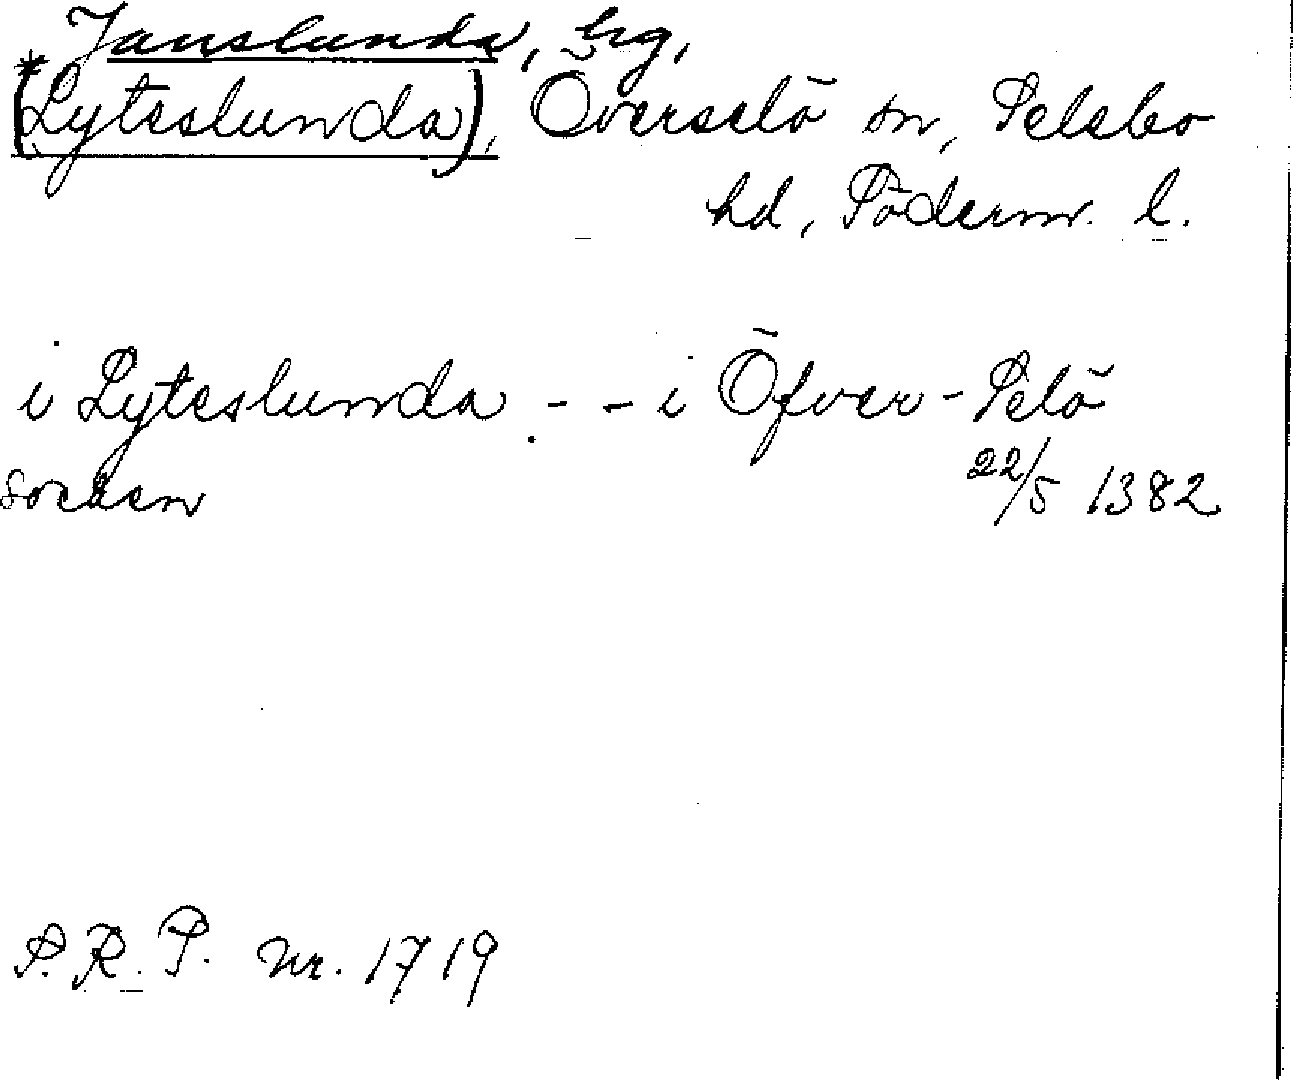 Janslunda, hg,
*(Lyteslunda), Överselö sn, Selebo
hd, Söderm. l.
i Lyteslunda - - i Öfver-Selö
socken 22/5 1382
S.R.P. nr. 1719